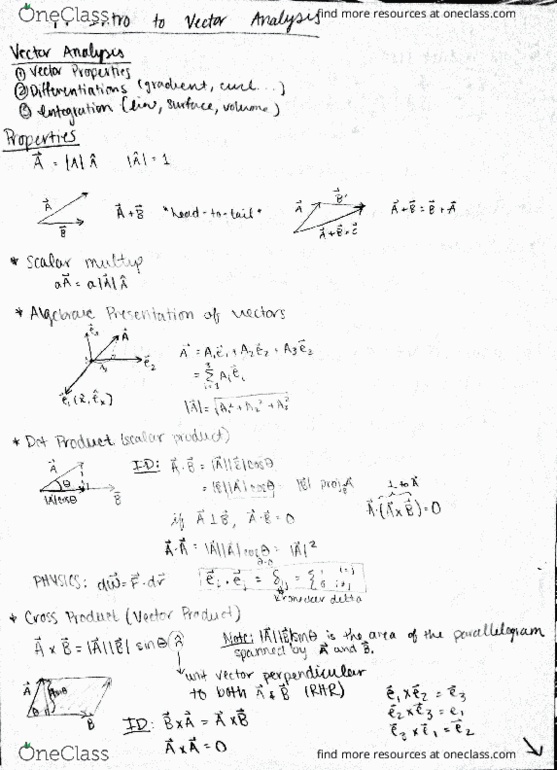 OneClass
find more resources at oneclass.com
Intro to Vector Analysis
Vector Analysis
① Vector Properties
② Differentiations (gradient, curl...)
③ Integration (line, surface, volume)
Properties
A⃗ = |A| Â |Â| = 1
A⃗
B⃗
A⃗+B⃗ "head-to-tail"
A⃗ B⃗
A⃗+B⃗=C⃗
A⃗+B⃗ = B⃗+A⃗
* Scalar multip
aA⃗ = a|A⃗|Â
* Algebraic Presentation of vectors
A⃗
e⃗₂
e⃗₁ (x̂, ê_x)
A⃗ = A₁e⃗₁ + A₂e⃗₂ + A₃e⃗₃
= Σ A_i e⃗_i
|A⃗| = √A₁² + A₂² + A₃²
* Dot Product (scalar product)
A⃗
θ
B⃗
|A|cosθ
ID: A⃗·B⃗ = |A⃗||B⃗|cosθ
= |B⃗||A⃗|cosθ
if A⃗⊥B⃗, A⃗·B⃗ = 0
⊥ to A⃗
A⃗·(A⃗×B⃗)=0
A⃗·A⃗ = |A⃗||A⃗|cosθ = |A⃗|²
PHYSICS: dW = F⃗·dr⃗
e⃗_i · e⃗_j = δ_ij = { 1 i=j 0 i≠j
kronecker delta
* Cross Product (Vector Product)
A⃗ × B⃗ = |A⃗||B⃗| sinθ
Note: |A⃗||B⃗|sinθ is the area of the parallelogram
spanned by A⃗ and B⃗.
unit vector perpendicular
to both A⃗ & B⃗ (RHR)
A⃗
θ
B
ID: B⃗×A⃗ = A⃗×B⃗
A⃗×A⃗ = 0
e⃗₁×e⃗₂ = e⃗₃
e⃗₂×e⃗₃ = e₁
e⃗₃×e⃗₁ = e⃗₂
OneClass
find more resources at oneclass.com